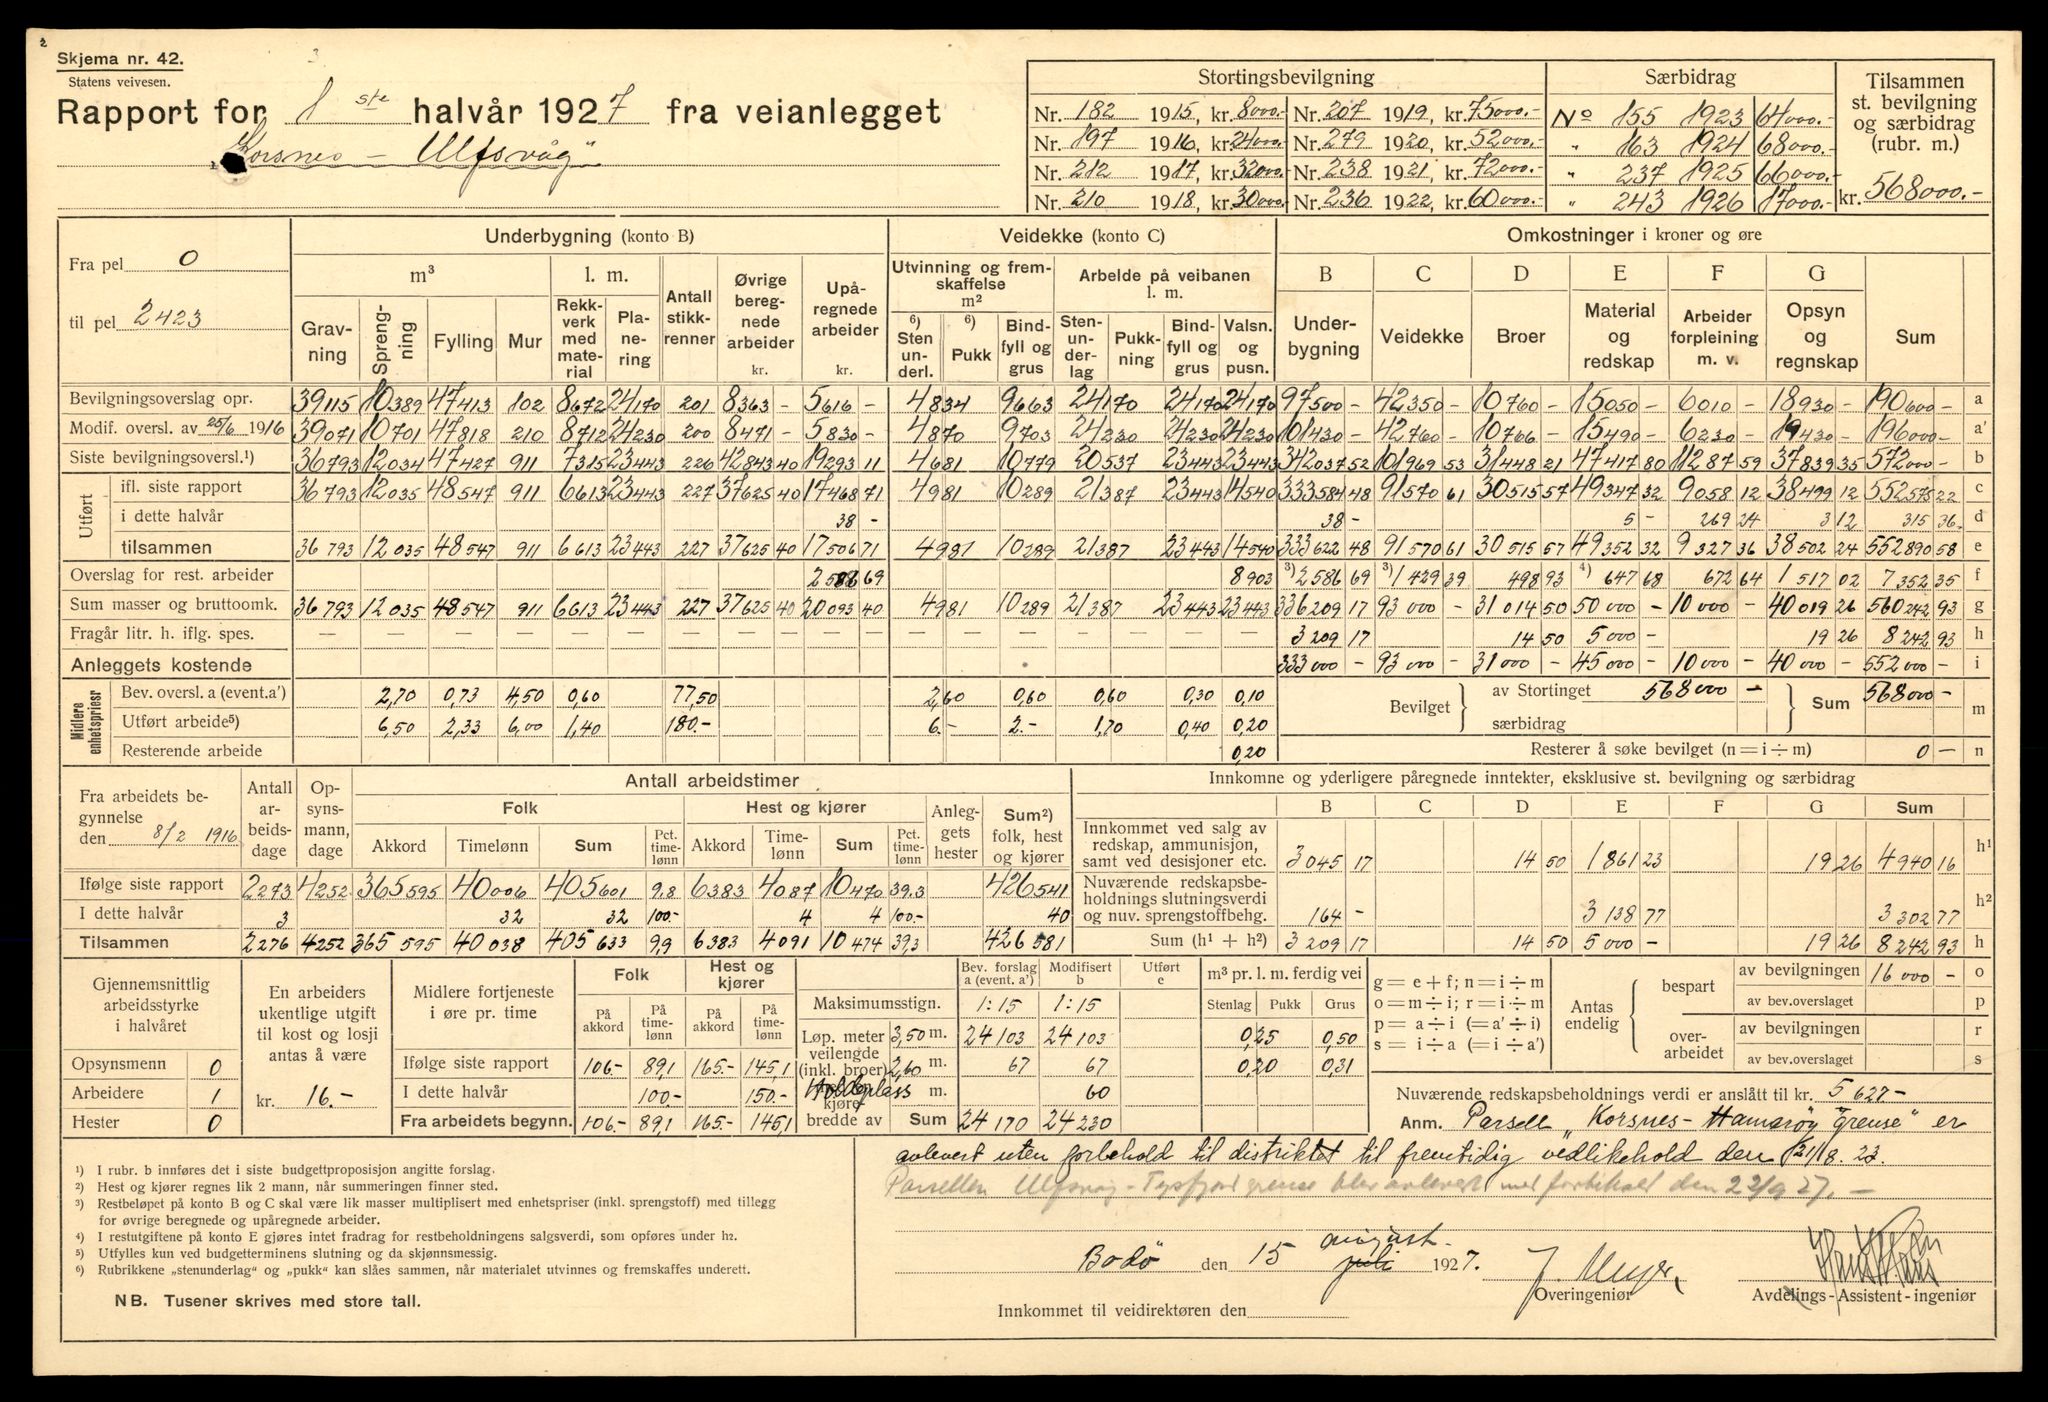 Skjema nr. 42.
Statens veivesen.
Rapport for 1 ste halvår 1927 fra veianlegget
"Korsnes - Ulfsvåg"
Stortingsbevilgning
Nr. 182 1915, kr. 8000.- Nr. 207 1919, kr. 75000.-
Nr. 197 1916, kr. 24000.- Nr. 279 1920, kr. 52000.-
Nr. 212 1917, kr. 32000.- Nr. 238 1921, kr. 72000.-
Nr. 210 1918, kr. 30000.- Nr. 236 1922, kr. 60000.-
Særbidrag
No 155 1923 64000.-
" 163 1924 68000.-
" 237 1925 66000.-
" 243 1926 17000.-
Tilsammen
st. bevilgning
og særbidrag
(rubr. m.)
kr. 568000.-
Fra pel 0
til pel 2423
Underbygning (konto B)
m³ l. m.
Gravning Sprengning Fylling Mur Rekkverk med material Planering Antall stikkrenner Øvrige beregnede arbeider kr. Upåregnede arbeider kr.
Veidekke (konto C)
Utvinning og fremskaffelse m² Arbeide på veibanen l. m.
6) Sten underl. 6) Pukk Bindfyll og grus Stenunderlag Pukkning Bindfyll og grus Valsn. og pusn.
Omkostninger i kroner og øre
B C D E F G
Underbygning Veidekke Broer Material og redskap Arbeiderforpleining m. v. Opsyn og regnskap Sum
Bevilgningsoverslag opr. 39115 10389 47413 102 8672 24170 201 8363 - 5616 - 4834 9663 24170 24170 24170 97500 - 42350 - 10760 - 15050 - 6010 - 18930 - 190600 - a
Modif. oversl. av 25/6 1916 39071 10701 47818 210 8712 24230 200 8471 - 5830 - 4870 9703 24230 24230 24230 101430 - 42760 - 10766 - 15490 - 6230 - 19430 - 196000 - a'
Siste bevilgningsoversl.¹) 36793 12034 47427 911 7315 23443 226 42843 40 19293 11 4681 10779 20537 23443 23443 342037 52 101969 53 31448 21 47417 80 11287 59 37839 35 572000 - b
Utført
ifl. siste rapport 36793 12035 48547 911 6613 23443 227 37625 40 17468 71 4981 10289 21387 23443 14540 333584 48 91570 61 30515 57 49347 32 9058 12 38499 12 552575 22 c
i dette halvår 38 - 38 - 5 - 269 24 3 12 315 36 d
tilsammen 36793 12035 48547 911 6613 23443 227 37625 40 17506 71 4981 10289 21387 23443 14540 333622 48 91570 61 30515 57 49352 32 9327 36 38502 24 552890 58 e
Overslag for rest. arbeider 2586 69 8903 ³) 2586 69 ³) 1429 39 498 93 ⁴) 647 68 672 64 1517 02 7352 35 f
Sum masser og bruttoomk. 36793 12035 48547 911 6613 23443 227 37625 40 20093 40 4981 10289 21387 23443 23443 336209 17 93000 - 31014 50 50000 - 10000 - 40019 26 560242 93 g
Fragår litr. h. iflg. spes. — — — — — — — — — — — — — — 3209 17 14 50 5000 - 19 26 8242 93 h
Anleggets kostende 333000 - 93000 - 31000 - 45000 - 10000 - 40000 - 552000 - i
Midlere enhetspriser
Bev. oversl. a (event. a') 2,70 0,73 4,50 0,60 77,50 2,60 0,60 0,60 0,30 0,10
Utført arbeide⁵) 6,50 2,33 6,00 1,40 180.- 6.- 2.- 1,70 0,40 0,20
Resterende arbeide 0,20
Bevilget av Stortinget 568000 - Sum 568000 - m
særbidrag
Resterer å søke bevilget (n = i ÷ m) 0 - n
Fra arbeidets begynnelse
den 8/2 1916
Antall arbeidsdage Opsynsmann, dage
Antall arbeidstimer
Folk Hest og kjører Anleggets hester Sum²) folk, hest og kjører
Akkord Timelønn Sum Pct. timelønn Akkord Timelønn Sum Pct. timelønn
Ifølge siste rapport 2273 4252 365595 40006 405601 9,8 6383 4087 10470 39,3 426541
I dette halvår 3 32 32 100.- 4 4 100.- 40
Tilsammen 2276 4252 365595 40038 405633 9,9 6383 4091 10474 39,3 426581
Innkomne og yderligere påregnede inntekter, eksklusive st. bevilgning og særbidrag
B C D E F G Sum
Innkommet ved salg av redskap, ammunisjon, samt ved desisjoner etc. 3045 17 14 50 1861 23 19 26 4940 16 h¹
Nuværende redskapsbeholdnings slutningsverdi og nuv. sprengstoffbehg. 164 - 3138 77 3302 77 h²
Sum (h¹ + h²) 3209 17 14 50 5000 - 19 26 8242 93 h
Gjennemsnittlig
arbeidsstyrke
i halvåret
Opsynsmenn 0
Arbeidere 1
Hester 0
En arbeiders
ukentlige utgift
til kost og losji
antas å være
kr. 16.-
Midlere fortjeneste
i øre pr. time
Folk Hest og kjører
På akkord På timelønn På akkord På timelønn
Ifølge siste rapport 106.- 89,1 165.- 145,1
I dette halvår 100.- 150.-
Fra arbeidets begynn. 106.- 89,1 165.- 145,1
Bev. forslag a (event. a') Modifisert b Utført e
Maksimumsstign. 1:15 1:15
Løp. meter 3,50 m. 24103 24103
veilengde (inkl. broer) 2,60 m. 67 67
Holdeplass m. 60
kjørebredde av Sum 24170 24230
m³ pr. l. m. ferdig vei
Stenlag Pukk Grus
0,25 0,50
0,20 0,31
g = e + f; n = i ÷ m
o = m ÷ i; r = i ÷ m
p = a ÷ i (= a' ÷ i)
s = i ÷ a (= i ÷ a')
Antas endelig
bespart av bevilgningen 16000 - o
av bev.overslaget p
overarbeidet av bevilgningen r
av bev.overslaget s
Nuværende redskapsbeholdnings verdi er anslått til kr. 5627-
Anm. Parsell "Korsnes - Hamarøy grense" er
avlevert uten forbehold til distriktet til fremtidig vedlikehold den 21/8. 23.
Parsellen Ulfsvåg - Tysfjord grense blev avlevert med forbehold den 22/9 27. -
¹) I rubr. b innføres det i siste budgettproposisjon angitte forslag.
²) Hest og kjører regnes lik 2 mann, når summeringen finner sted.
³) Restbeløpet på konto B og C skal være lik masser multiplisert med enhetspriser (inkl. sprengstoff) med tillegg
for øvrige beregnede og upåregnede arbeider.
⁴) I restutgiftene på konto E gjøres intet fradrag for restbeholdningens salgsverdi, som opføres under h₂.
⁵) Utfylles kun ved budgetterminens slutning og da skjønnsmessig.
⁶) Rubrikkene „stenunderlag" og „pukk" kan slåes sammen, når materialet utvinnes og fremskaffes underett.
NB. Tusener skrives med store tall.
Bodö den 15 juli august 1927.
J. Meyer.
Overingeniør
Avdelings-Assistent-ingeniør
Innkommet til veidirektøren den